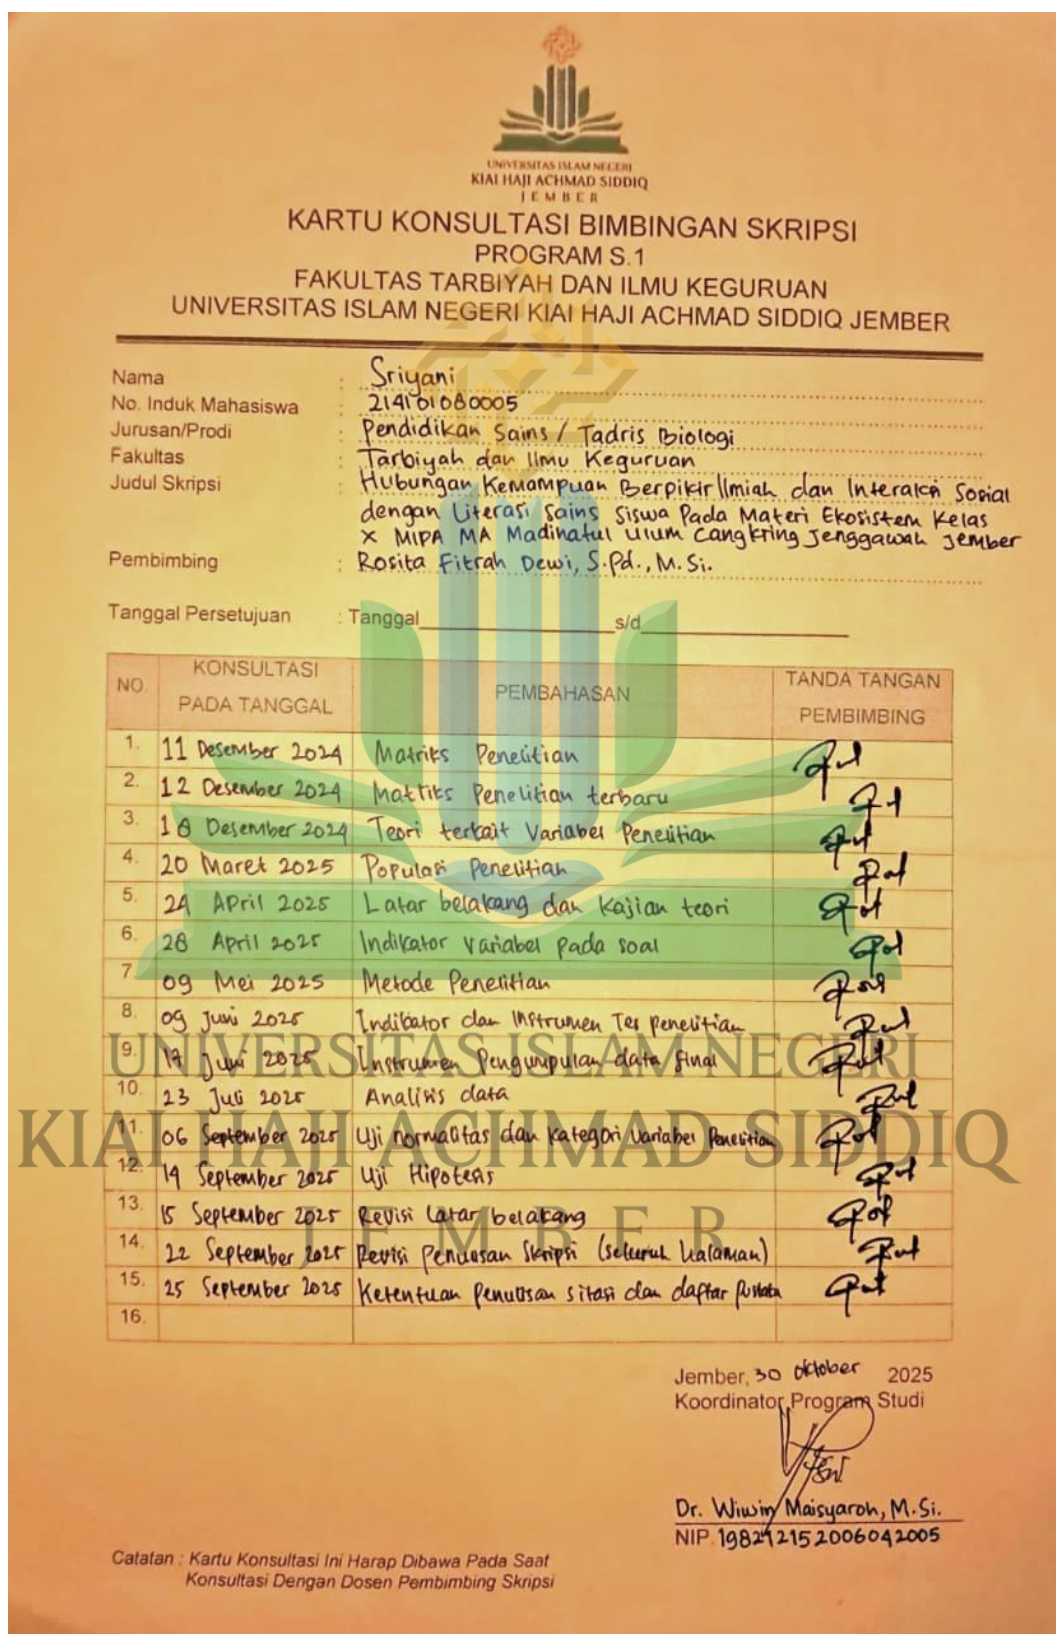 UNIVERSITAS ISLAM NEGERI
KIAI HAJI ACHMAD SIDDIQ
JEMBER
KARTU KONSULTASI BIMBINGAN SKRIPSI
PROGRAM S.1
FAKULTAS TARBIYAH DAN ILMU KEGURUAN
UNIVERSITAS ISLAM NEGERI KIAI HAJI ACHMAD SIDDIQ JEMBER
Nama : Sriyani
No. Induk Mahasiswa : 214101080005
Jurusan/Prodi : Pendidikan Sains / Tadris Biologi
Fakultas : Tarbiyah dan Ilmu Keguruan
Judul Skripsi : Hubungan Kemampuan Berpikir Ilmiah dan Interaksi Sosial
dengan Literasi Sains Siswa Pada Materi Ekosistem Kelas
X MIPA MA Madinatul Ulum Cangkring Jenggawah Jember
Pembimbing : Rosita Fitrah Dewi, S.Pd., M.Si.
Tanggal Persetujuan : Tanggal s/d
NO. KONSULTASI PADA TANGGAL PEMBAHASAN TANDA TANGAN PEMBIMBING
1. 11 Desember 2024 Matriks Penelitian
2. 12 Desember 2024 Matriks Penelitian terbaru
3. 18 Desember 2024 Teori terkait Variabel Penelitian
4. 20 Maret 2025 Populasi Penelitian
5. 24 April 2025 Latar belakang dan Kajian teori
6. 28 April 2025 Indikator Variabel pada soal
7. 09 Mei 2025 Metode Penelitian
8. 09 Juni 2025 Indikator dan Instrumen Tes penelitian
9. 17 Juni 2025 Instrumen Pengumpulan data final
10. 23 Juli 2025 Analisis data
11. 06 September 2025 Uji normalitas dan kategori Variabel Penelitian
12. 14 September 2025 Uji Hipotesis
13. 15 September 2025 Revisi Latar belakang
14. 22 September 2025 Revisi Penulisan Skripsi (seluruh halaman)
15. 25 September 2025 Ketentuan penulisan sitasi dan daftar pustaka
16.
UNIVERSITAS ISLAM NEGERI
KIAI HAJI ACHMAD SIDDIQ
JEMBER
Jember, 30 Oktober 2025
Koordinator Program Studi
Dr. Wiwin Maisyaroh, M.Si.
NIP. 198212152006042005
Catatan : Kartu Konsultasi Ini Harap Dibawa Pada Saat
Konsultasi Dengan Dosen Pembimbing Skripsi